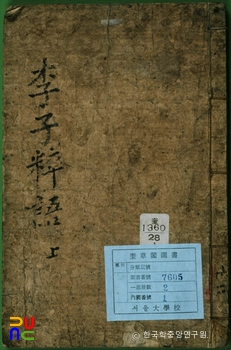 李子粹語 上
東
1360
28
奎章閣圖書
圖書番號 7605
一部冊數 2
冊番號 1
서울大學校
© 한국학중앙연구원